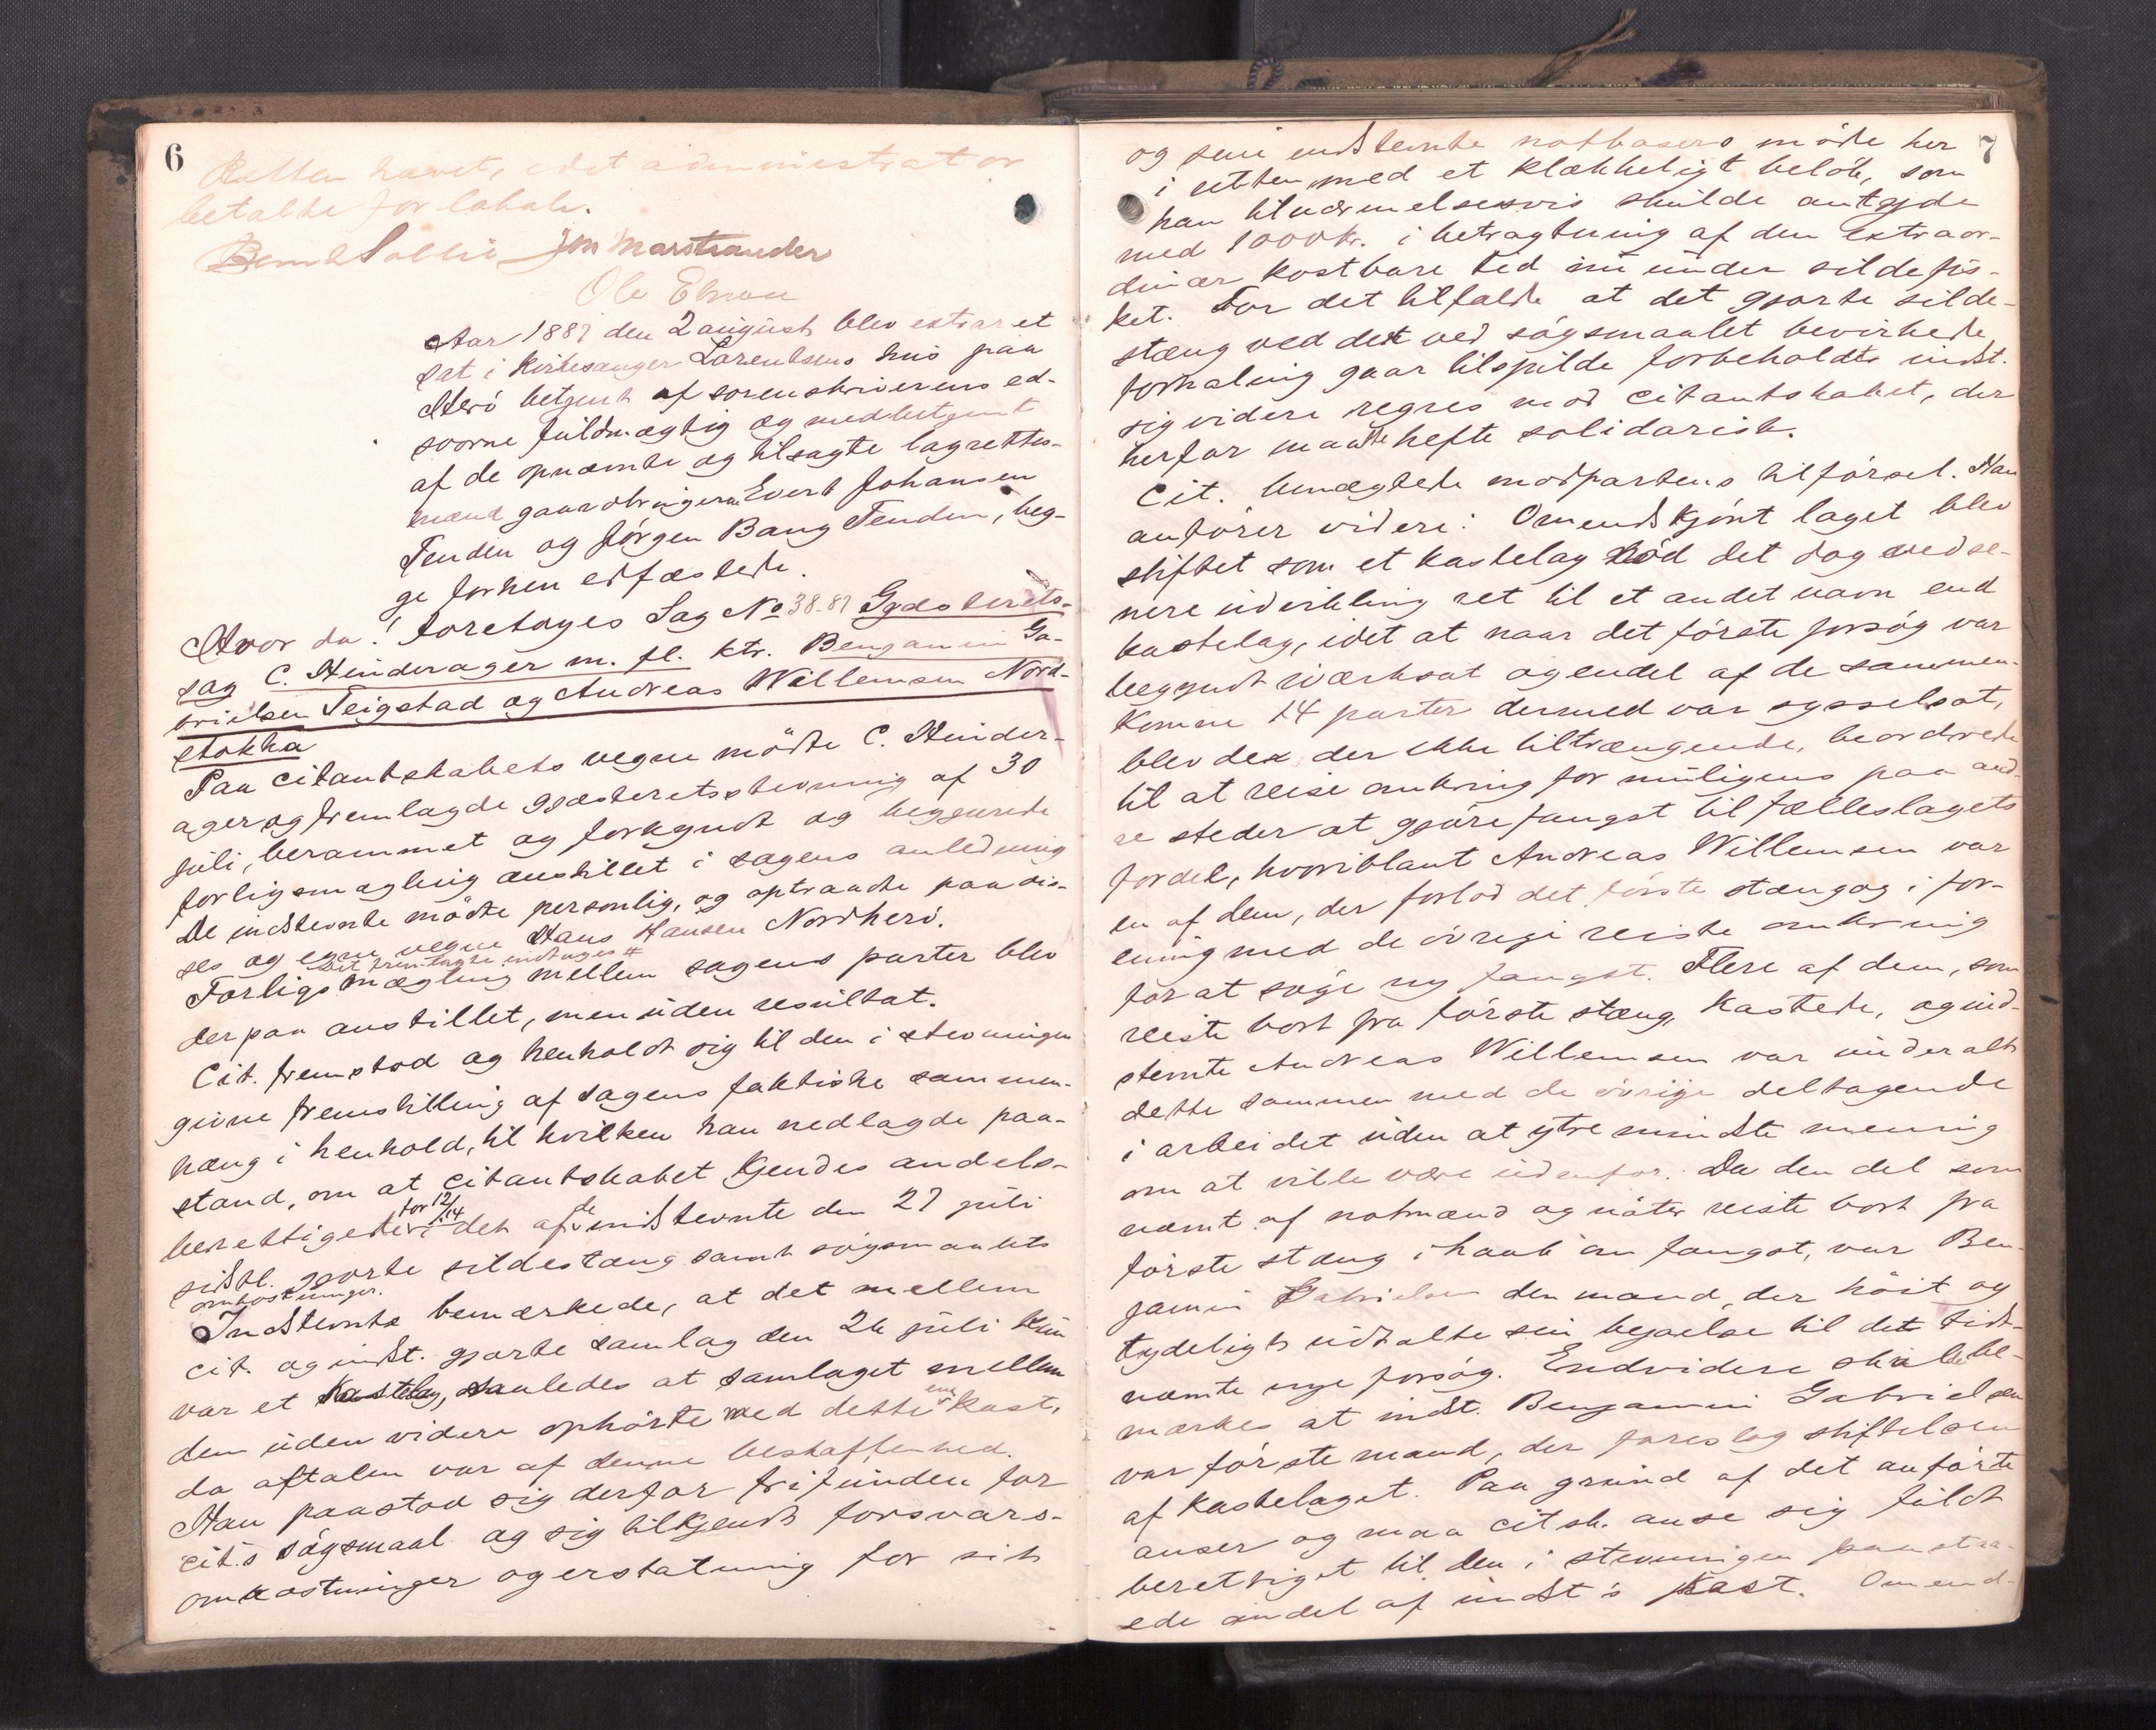 6
Retten hævet, idet administrator
betalte for lokale.
Bernt Sollie Jm Marstrander
Ole
Aar 1887 den 2 august blev extraret
sat i kirkesanger Lorentsens hus paa
Herö betjent af sorenskriverens ed-
svorne fuldmægtig og medbetjent
af de opnævnte og tilsagte lagrettes-
mænd gaardbrugerne Evert Johansen
Tenden og Jörgen Bang Tenden, beg-
ge forhen edfæstede.
Hvor da! foretoges Sag No 38-87 Gjæsterets-
sag C. Hinderager m. fl. ktr. Benjamin Ga-
brielsen Teigstad og Andreas Willemsen Nord-
stokka
Paa citantskabets vegne mödte C. Hinder-
ager og fremlagde gjæsteretsstevning af 30
juli, berammet og forkyndt og begjærede
forligsmægling anstillet i sagens anledning
De indstevnte mödte personlig, og optraadte paa dis-
ses og egne vegne Hans Hansen Nordherö.
Det fremlagte indtages #
Forligsmægling mellem sagens parter blev
derpaa anstillet, men uden resultat.
Cit. fremstod og henholdt sig til den i stevningen
givne fremstilling af sagens faktiske sammen-
hæng i henhold, til hvilken han nedlagde paa-
stand, om at citantskabet kjendes andels-
berettigede for 12/14 i det af de indstevnte den 27 juli
sidstl. gjorte sildestæng samt sögsmaalets
omkostninger.
Indstevnte bemærkede, at det mellem
cit. og indst. gjorte samlag den 26 juli kun
var et Kastelag, saaledes at samlaget mellem
dem uden videre ophörte med dette ene kast,
da aftalen var af denne beskaffenhed.
Han paastod sig derfor frifunden for
cit.s sögsmaal og sig tilkjendt forsvars-
omkostninger og erstatning for sit
7
og sine indstevnte notbasers möde her
i retten, med et klækkeligt belöb, som
han tilnærmelsesvis skulde antyde
med 1000 kr. i betragtning af den extraor-
dinær kostbare tid nu under sildefis-
ket. For det tilfælde at det gjorte silde-
stæng ved det ved sögsmaalet bevirkede
forhaling gaar tilspilde forbeholdtes indst.
sig videre regres mod citantskabet, der
herfor maatte hefte solidarisk.
Cit. benægtede modpartens tilförsel. Han
anförer videre: Omendskjönt laget blev
stiftet som et kastelag löd det dog ved se-
nere udvikling ret til et andet navn end
kastelag, idet at naar det förste forsög var
begyndt iværksat og endel af de sammen-
komne 14 parter dermed var sysselsat,
blev den der ikke tiltrængende, beordrede
til at reise omkring for muligens paa and-
re steder at gjöre fangst til fælleslagets
fordel, hvoriblant Andreas Willemsen var
en af dem, der forlod det förste stæng og i for-
ening med de övrige reiste omkring
for at söge ny fangst. Flere af dem, som
reiste bort fra förste stæng, kastede, og ind-
stevnte Andreas Willemsen var under alt
dette sammen med de övrige deltagende
i arbeidet uden at ytre mindste mening
om at ville være udenfor. Da den del som
nævnt af notmænd og nöter reiste bort fra
förste stæng i haab om fangst, var Ben-
jamin Gabrielsen den mand, der höit og
tydeligt udtalte sin bejaelse til det sidst-
nævnte nye forsög. Endvidere skulde be-
mærkes at indst. Benjamin Gabrielsen
var förste mand, der foreslog stiftelsen
af kastelaget. Paa grund af det anförte
anser og maa citsk. anse sig fuldt
berettiget til den i stevningen paastaa-
ede andel af indst's kast. Omend-